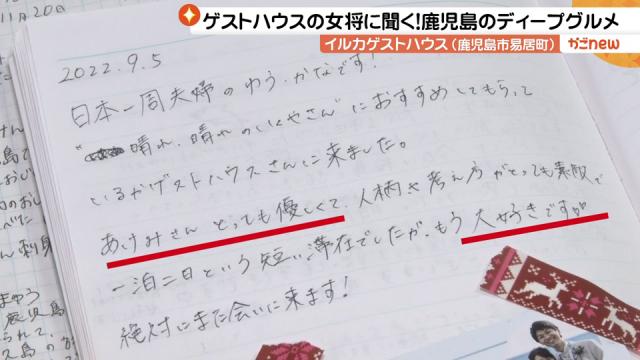 ゲストハウスの女将に聞く!鹿児島のディープグルメ
イルカゲストハウス(鹿児島市易居町)
かごnew
11月20日
2022.9.5
日本一周夫婦のゆう・かなです!
晴れ、晴れのいくやさん"におすすめしてもらって
いるかゲストハウスさんに来ました。
あけみさん とっても優しくて、人柄や考え方がとっても素敵で
一泊二日という短い滞在でしたが、もう大好きですが
絶対にまた会いに来ます!